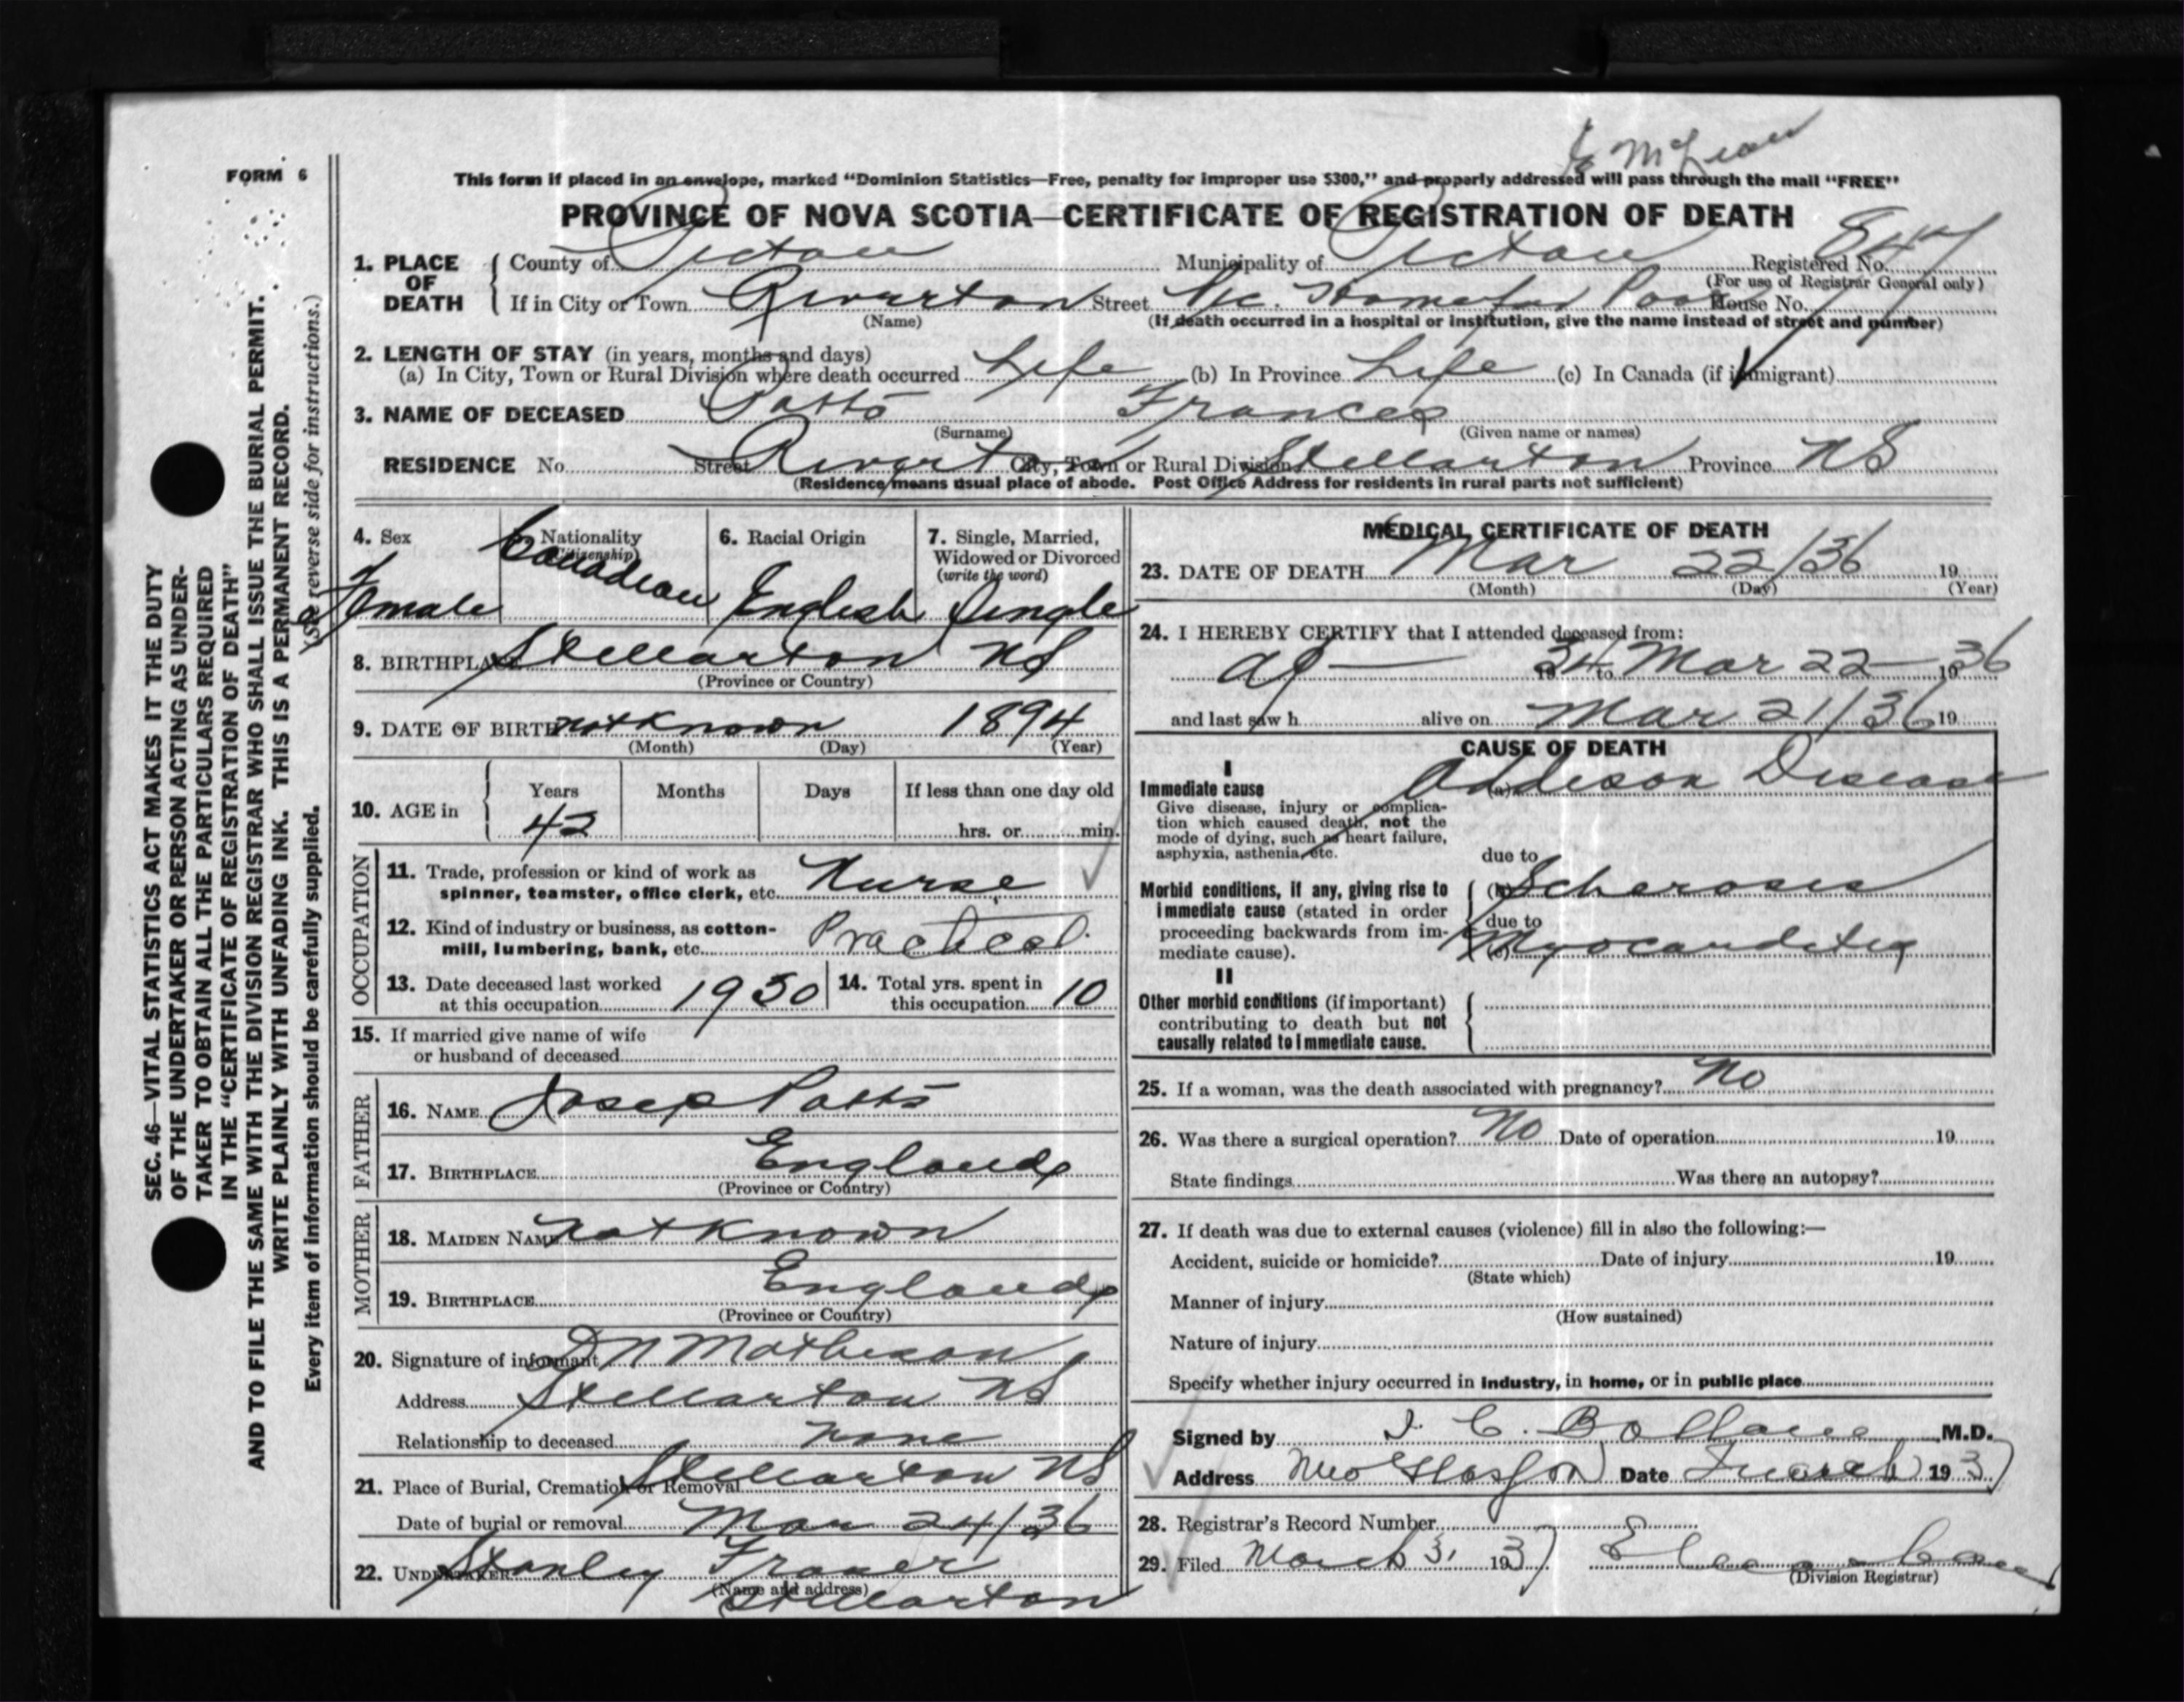 E McLean
FORM 6
This form if placed in an envelope, marked “Dominion Statistics—Free, penalty for improper use $300,” and properly addressed will pass through the mail “FREE”
PROVINCE OF NOVA SCOTIA—CERTIFICATE OF REGISTRATION OF DEATH
1. PLACE OF DEATH { County of Pictou Municipality of Pictou Registered No. 847
(For use of Registrar General only)
If in City or Town Riverton Street Pic. Home for Poor House No.
(Name) (If death occurred in a hospital or institution, give the name instead of street and number)
2. LENGTH OF STAY (in years, months and days)
(a) In City, Town or Rural Division where death occurred Life (b) In Province Life (c) In Canada (if immigrant)
3. NAME OF DECEASED Potts Frances
(Surname) (Given name or names)
RESIDENCE No. Street Riverton City, Town or Rural Division Stellarton Province NS
(Residence means usual place of abode. Post Office Address for residents in rural parts not sufficient)
4. Sex Nationality (Citizenship) 6. Racial Origin 7. Single, Married, Widowed or Divorced (write the word)
Female Canadian English Single
8. BIRTHPLACE Stellarton NS
(Province or Country)
9. DATE OF BIRTH not known 1894
(Month) (Day) (Year)
10. AGE in { Years Months Days If less than one day old
42 hrs. or min.
OCCUPATION
11. Trade, profession or kind of work as
spinner, teamster, office clerk, etc. Nurse
12. Kind of industry or business, as cotton-
mill, lumbering, bank, etc. Practical
13. Date deceased last worked at this occupation 1930 14. Total yrs. spent in this occupation 10
15. If married give name of wife
or husband of deceased
FATHER
16. NAME Josep Potts
17. BIRTHPLACE England
(Province or Country)
MOTHER
18. MAIDEN NAME not known
19. BIRTHPLACE England
(Province or Country)
20. Signature of informant D N Matheson
Address Stellarton NS
Relationship to deceased none
21. Place of Burial, Cremation or Removal Stellarton NS
Date of burial or removal Mar 24/36
22. UNDERTAKER Stanley Fraser
(Name and address)
Stellarton
MEDICAL CERTIFICATE OF DEATH
23. DATE OF DEATH Mar 22/36 19
(Month) (Day) (Year)
24. I HEREBY CERTIFY that I attended deceased from:
1934 to Mar 22 1936
and last saw h alive on Mar 21/36 19
CAUSE OF DEATH
I
Immediate cause (a) Addison Disease
Give disease, injury or complica-
tion which caused death, not the
mode of dying, such as heart failure,
asphyxia, asthenia, etc.
due to
Morbid conditions, if any, giving rise to { (b) Scherosis
immediate cause (stated in order
due to
proceeding backwards from im- (c) Myocarditis
mediate cause).
II
Other morbid conditions (if important)
contributing to death but not
causally related to immediate cause.
25. If a woman, was the death associated with pregnancy? No
26. Was there a surgical operation? No Date of operation 19
State findings Was there an autopsy?
27. If death was due to external causes (violence) fill in also the following:—
Accident, suicide or homicide? Date of injury 19
(State which)
Manner of injury
(How sustained)
Nature of injury
Specify whether injury occurred in industry, in home, or in public place
Signed by M.D.
Address New Glasgow Date March 1937
28. Registrar's Record Number
29. Filed March 31 1937
(Division Registrar)
SEC. 46—VITAL STATISTICS ACT MAKES IT THE DUTY
OF THE UNDERTAKER OR PERSON ACTING AS UNDER-
TAKER TO OBTAIN ALL THE PARTICULARS REQUIRED
IN THE “CERTIFICATE OF REGISTRATION OF DEATH”
AND TO FILE THE SAME WITH THE DIVISION REGISTRAR WHO SHALL ISSUE THE BURIAL PERMIT.
WRITE PLAINLY WITH UNFADING INK. THIS IS A PERMANENT RECORD.
Every item of information should be carefully supplied. (See reverse side for instructions.)